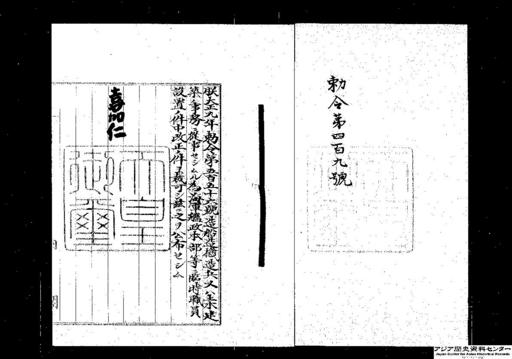 勅令第四百九號
朕大正九年勅令第五百五十六號造船造機造兵又ハ土木建
築ノ事務ニ從事セシムル爲海軍艦政本部等ニ臨時職員
設置ノ件中改正ノ件ヲ裁可シ茲ニ之ヲ公布セシム
嘉仁
天皇御璽
アジア歴史資料センター
Japan Center for Asian Historical Records